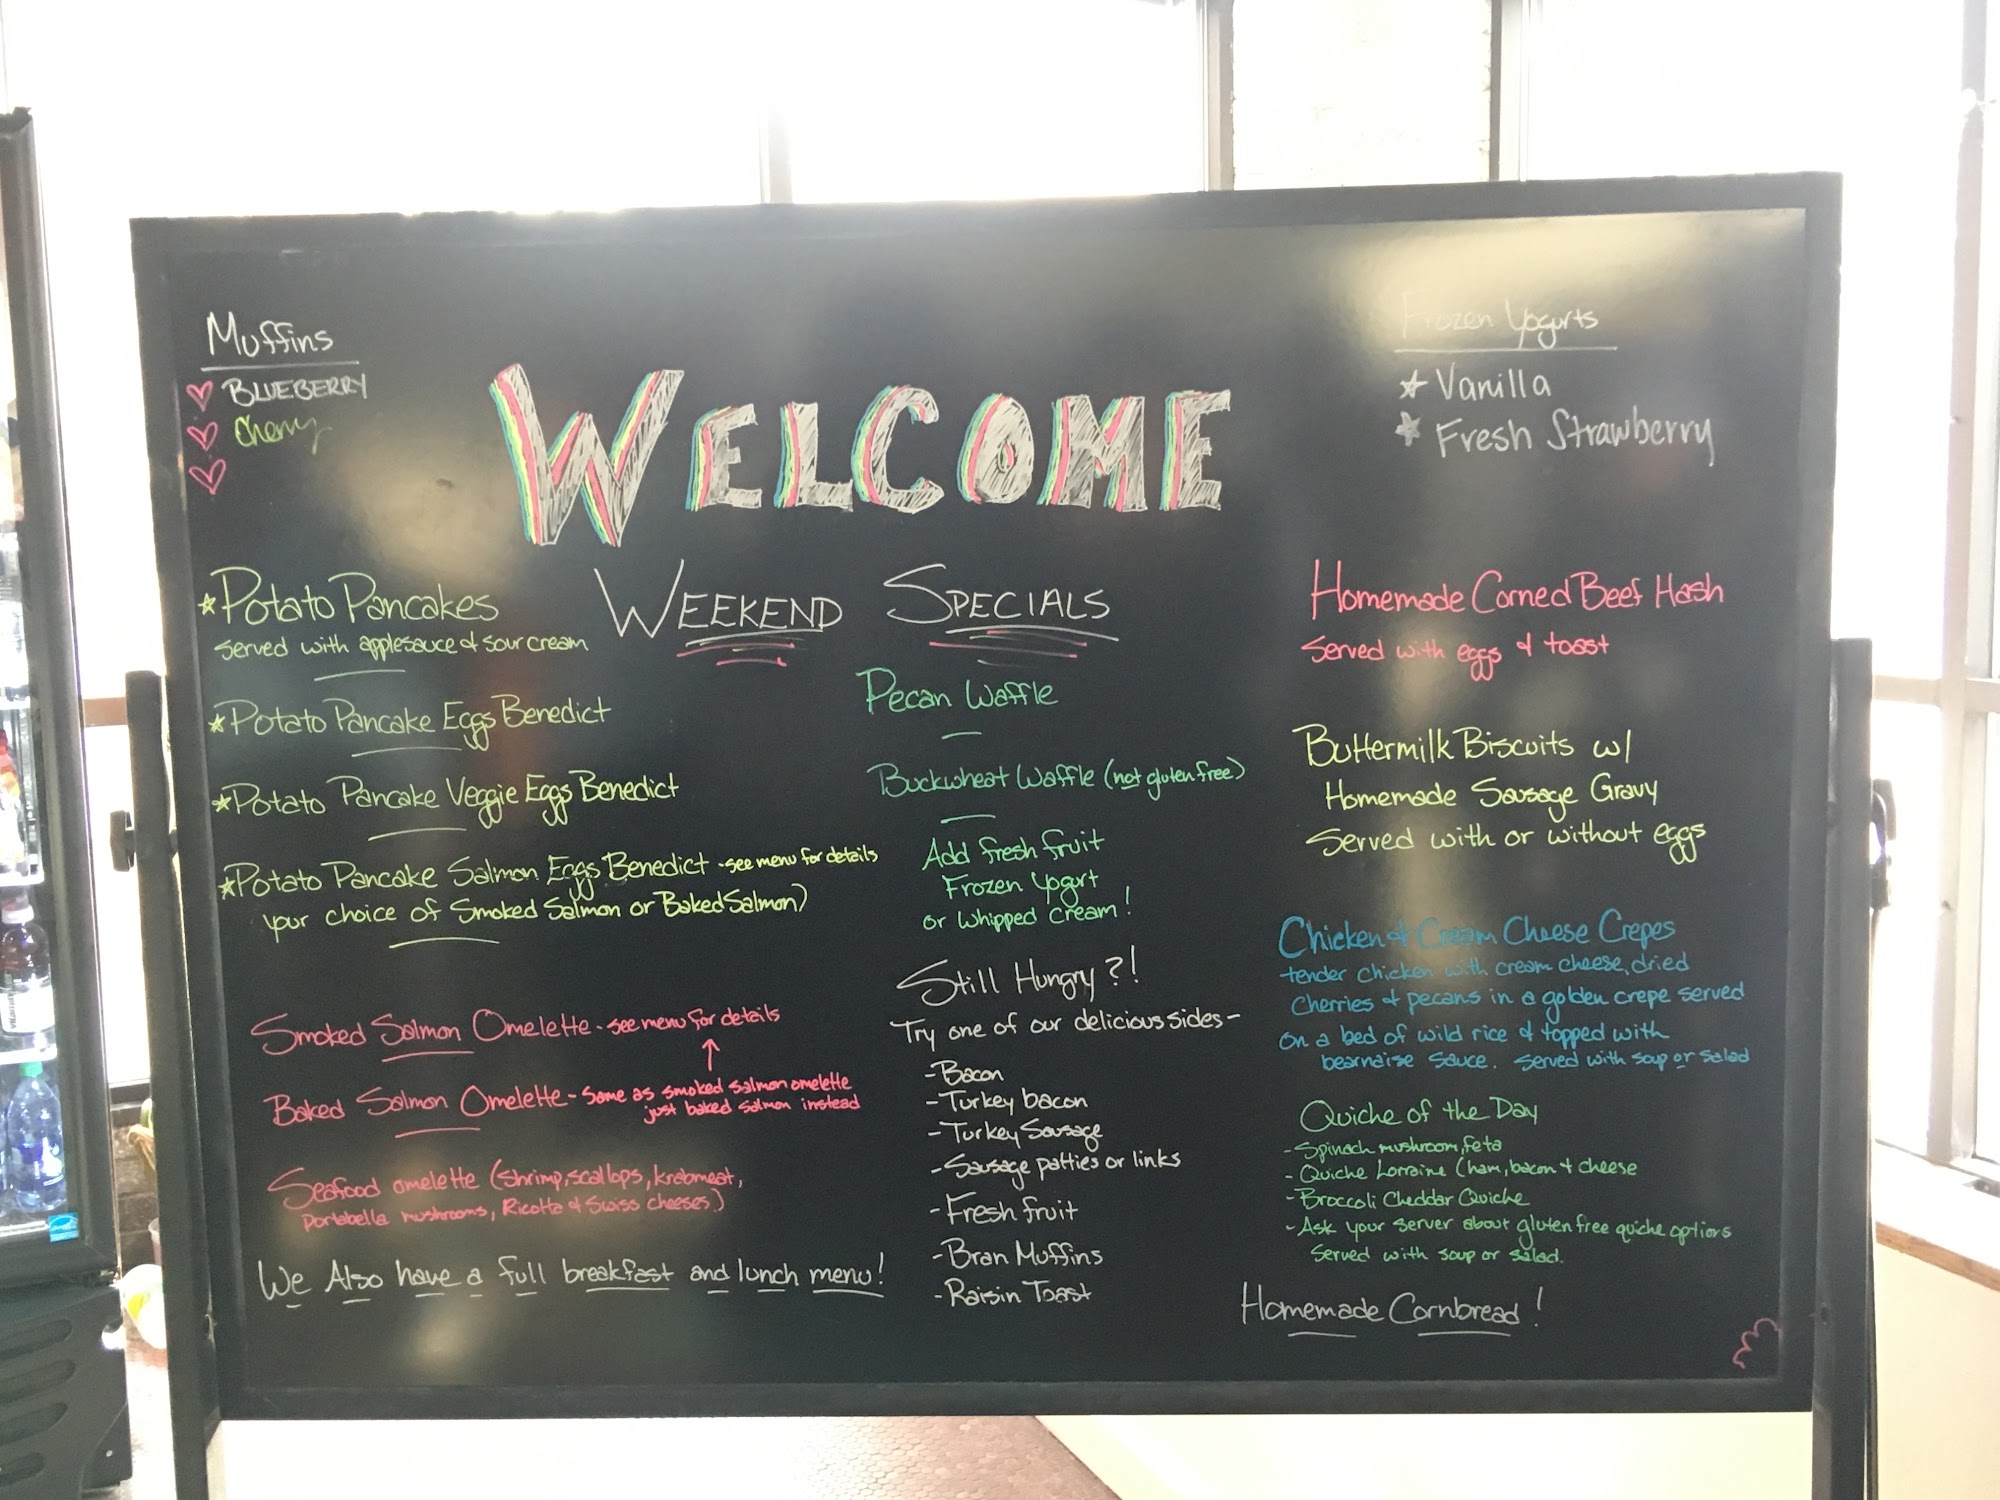 Muffins
BLUEBERRY
Cherry
Frozen Yogurts
Vanilla
Fresh Strawberry
WELCOME
WEEKEND SPECIALS
Potato Pancakes
served with applesauce & sour cream
Potato Pancake Eggs Benedict
Potato Pancake Veggie Eggs Benedict
Potato Pancake Salmon Eggs Benedict - see menu for details
your choice of Smoked Salmon or Baked Salmon)
Smoked Salmon Omelette - see menu for details
Baked Salmon Omelette - Same as smoked salmon omelette
just baked salmon instead
Seafood omelette (shrimp, scallops, krabmeat,
Portabella mushrooms, Ricotta & Swiss cheeses.)
We Also have a full breakfast and lunch menu!
Pecan Waffle
Buckwheat Waffle (not gluten free)
Add fresh fruit
Frozen Yogurt
or whipped cream!
Still Hungry?!
Try one of our delicious sides-
-Bacon
-Turkey bacon
-Turkey Sausage
-Sausage patties or links
-Fresh fruit
-Bran Muffins
-Raisin Toast
Homemade Corned Beef Hash
Served with eggs & toast
Buttermilk Biscuits w/
Homemade Sausage Gravy
Served with or without eggs
Chicken & Cream Cheese Crepes
tender chicken with cream cheese, dried
cherries & pecans in a golden crepe served
on a bed of wild rice & topped with
bearnaise sauce. Served with soup or salad
Quiche of the Day
-Spinach mushroom, feta
-Quiche Lorraine (ham, bacon + cheese
-Broccoli Cheddar Quiche
-Ask your server about gluten free quiche options
Served with soup or salad.
Homemade Cornbread!